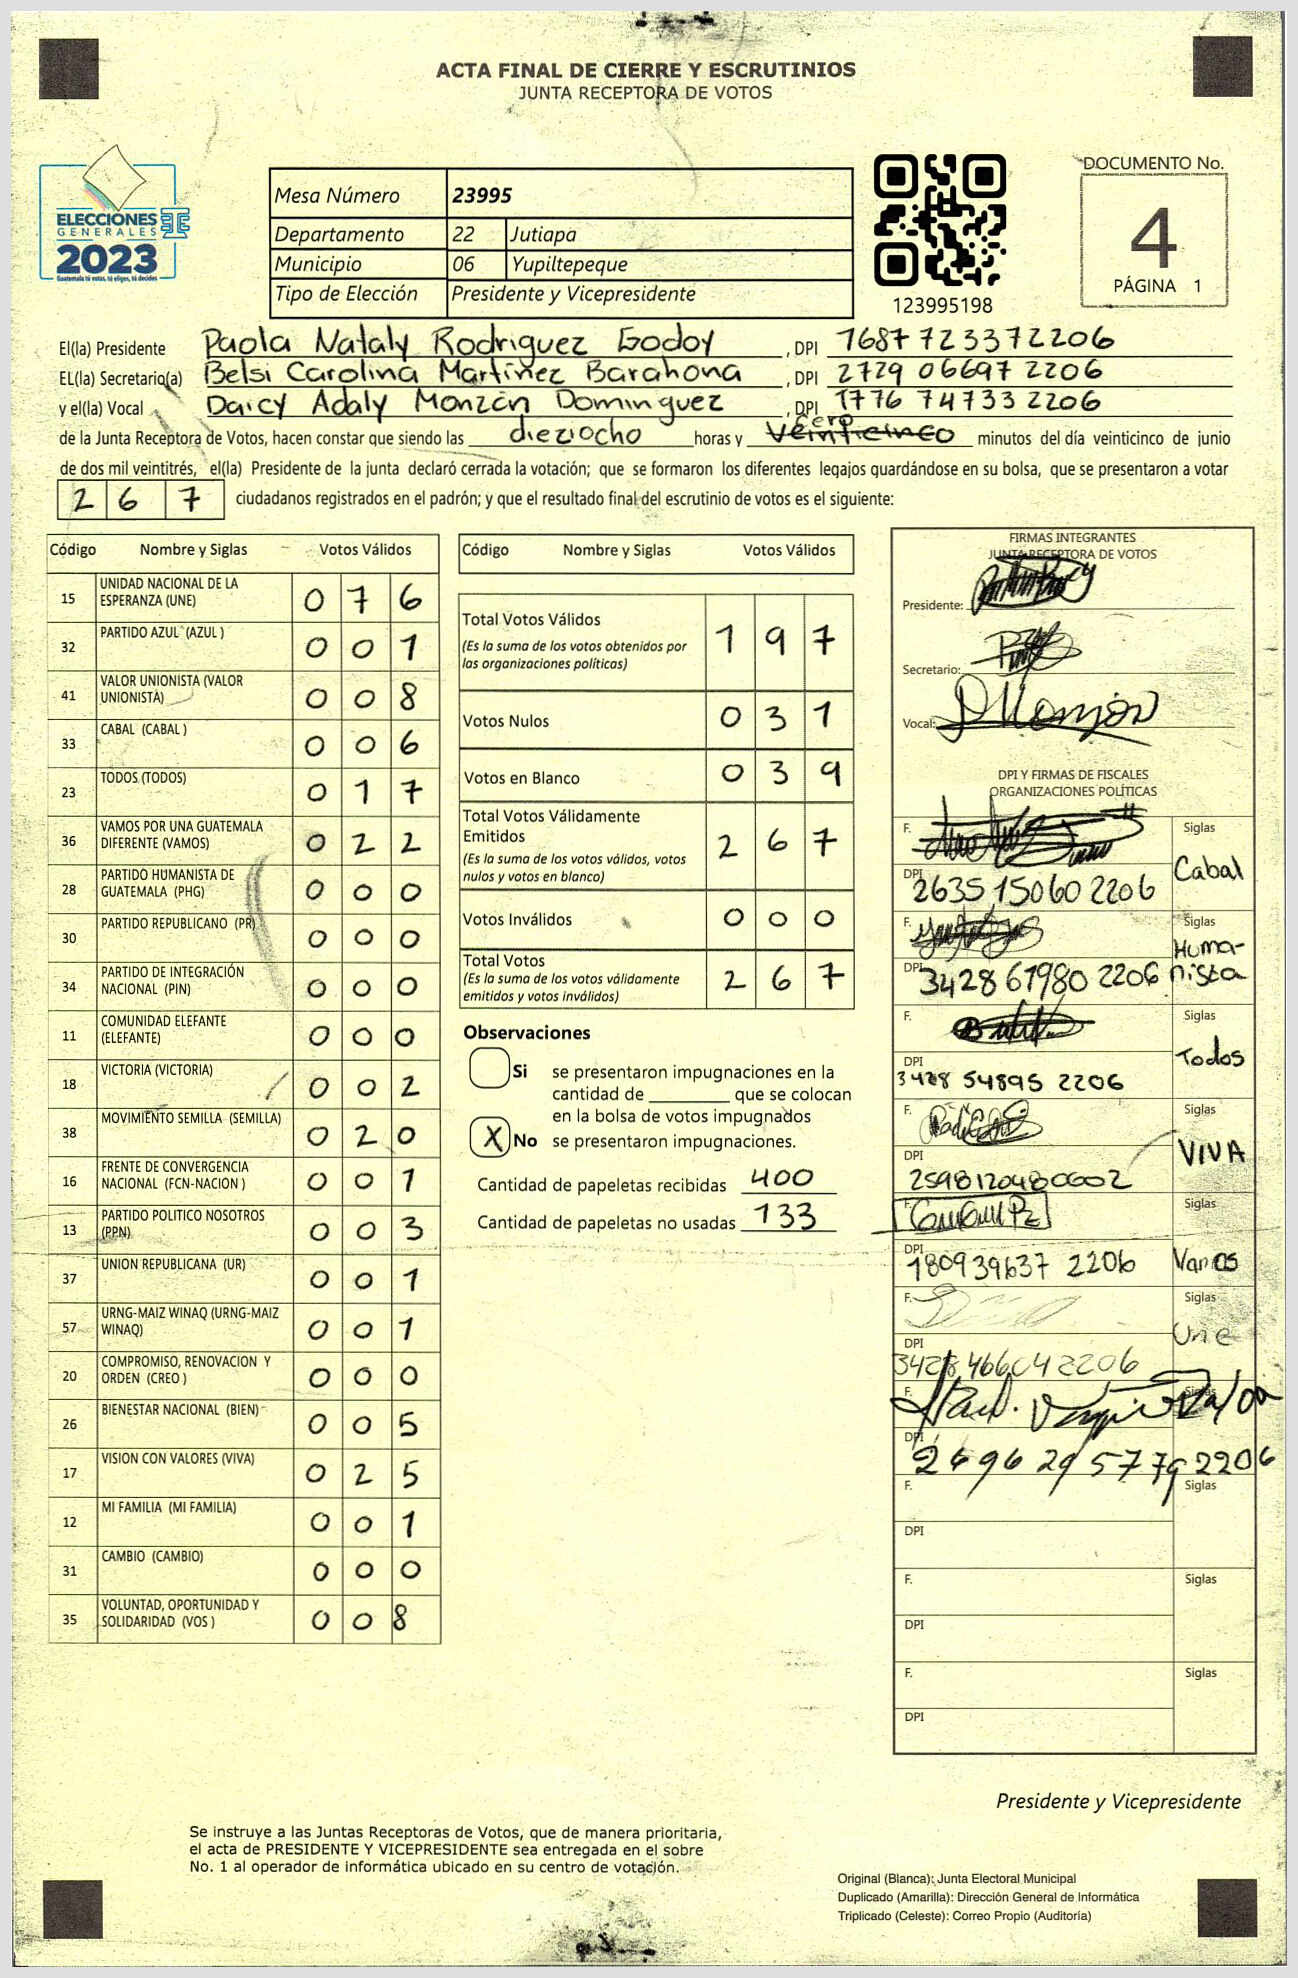 ACTA FINAL DE CIERRE Y ESCRUTINIOS
JUNTA RECEPTORA DE VOTOS
ELECCIONES
GENERALES
2023
Guatemala tú votas, tú eliges, tú decides
Mesa Número 23995
Departamento 22 Jutiapa
Municipio 06 Yupiltepeque
Tipo de Elección Presidente y Vicepresidente
123995198
DOCUMENTO No.
4
PÁGINA 1
El(la) Presidente Paola Nataly Rodriguez Godoy , DPI 1687 72337 2206
EL(la) Secretario(a) Belsi Carolina Martinez Barahona , DPI 2729 06697 2206
y el(la) Vocal Daicy Adaly Monzón Dominguez , DPI 1776 74733 2206
de la Junta Receptora de Votos, hacen constar que siendo las dieziocho horas y cero veinticinco minutos del día veinticinco de junio
de dos mil veintitrés, el(la) Presidente de la junta declaró cerrada la votación; que se formaron los diferentes legajos quardándose en su bolsa, que se presentaron a votar
2 6 7 ciudadanos registrados en el padrón; y que el resultado final del escrutinio de votos es el siguiente:
Código Nombre y Siglas Votos Válidos
15 UNIDAD NACIONAL DE LA ESPERANZA (UNE) 0 7 6
32 PARTIDO AZUL (AZUL ) 0 0 1
41 VALOR UNIONISTA (VALOR UNIONISTA) 0 0 8
33 CABAL (CABAL ) 0 0 6
23 TODOS (TODOS) 0 1 7
36 VAMOS POR UNA GUATEMALA DIFERENTE (VAMOS) 0 2 2
28 PARTIDO HUMANISTA DE GUATEMALA (PHG) 0 0 0
30 PARTIDO REPUBLICANO (PR) 0 0 0
34 PARTIDO DE INTEGRACIÓN NACIONAL (PIN) 0 0 0
11 COMUNIDAD ELEFANTE (ELEFANTE) 0 0 0
18 VICTORIA (VICTORIA) 0 0 2
38 MOVIMIENTO SEMILLA (SEMILLA) 0 2 0
16 FRENTE DE CONVERGENCIA NACIONAL (FCN-NACION ) 0 0 1
13 PARTIDO POLITICO NOSOTROS (PPN) 0 0 3
37 UNION REPUBLICANA (UR) 0 0 1
57 URNG-MAIZ WINAQ (URNG-MAIZ WINAQ) 0 0 1
20 COMPROMISO, RENOVACION Y ORDEN (CREO ) 0 0 0
26 BIENESTAR NACIONAL (BIEN) 0 0 5
17 VISION CON VALORES (VIVA) 0 2 5
12 MI FAMILIA (MI FAMILIA) 0 0 1
31 CAMBIO (CAMBIO) 0 0 0
35 VOLUNTAD, OPORTUNIDAD Y SOLIDARIDAD (VOS ) 0 0 8
Código Nombre y Siglas Votos Válidos
Total Votos Válidos 1 9 7
(Es la suma de los votos obtenidos por
las organizaciones políticas)
Votos Nulos 0 3 1
Votos en Blanco 0 3 9
Total Votos Válidamente
Emitidos 2 6 7
(Es la suma de los votos válidos, votos
nulos y votos en blanco)
Votos Inválidos 0 0 0
Total Votos 2 6 7
(Es la suma de los votos válidamente
emitidos y votos inválidos)
Observaciones
Si se presentaron impugnaciones en la
cantidad de ________ que se colocan
en la bolsa de votos impugnados
X No se presentaron impugnaciones.
Cantidad de papeletas recibidas 400
Cantidad de papeletas no usadas 133
FIRMAS INTEGRANTES
JUNTA RECEPTORA DE VOTOS
Presidente:
Secretario:
Vocal: DMonzón
DPI Y FIRMAS DE FISCALES
ORGANIZACIONES POLÍTICAS
F. Siglas
DPI 2635 15060 2206 Cabal
F. Siglas
DPI 3428 61980 2206 Huma-
nista
F. Siglas
DPI 3428 54895 2206 Todos
F. Siglas
DPI 2598120480602 VIVA
F. Siglas
DPI 180939637 2206 Vamos
F. Siglas
DPI 3428 46604 2206 Une
F. Siglas
DPI 2696 29577 2206
F. Siglas
DPI
F. Siglas
DPI
F. Siglas
DPI
Presidente y Vicepresidente
Se instruye a las Juntas Receptoras de Votos, que de manera prioritaria,
el acta de PRESIDENTE Y VICEPRESIDENTE sea entregada en el sobre
No. 1 al operador de informática ubicado en su centro de votación.
Original (Blanca): Junta Electoral Municipal
Duplicado (Amarilla): Dirección General de Informática
Triplicado (Celeste): Correo Propio (Auditoría)